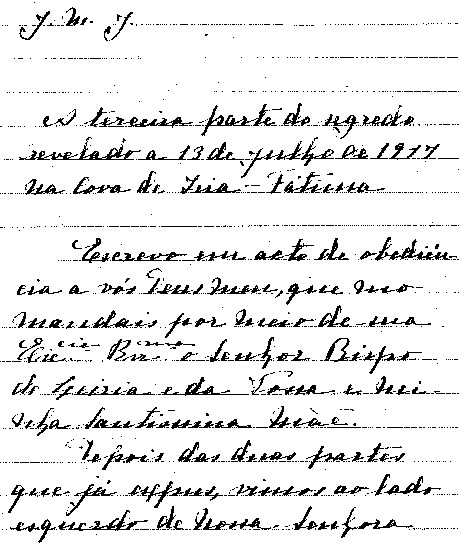 J. M. J.
A terceira parte do segredo
revelado a 13 de julho de 1917
na Cova de Iria - Fátima
Escrevo em acto de obediên-
cia a vós Deus meu, que mo
mandais por meio de sua
Ex.cia Rev.ma o Senhor Bispo
de Leiria e da Vossa e mi-
nha Santissima Mãe.
Depois das duas partes
que já expus, vimos ao lado
esquerdo de Nossa Senhora